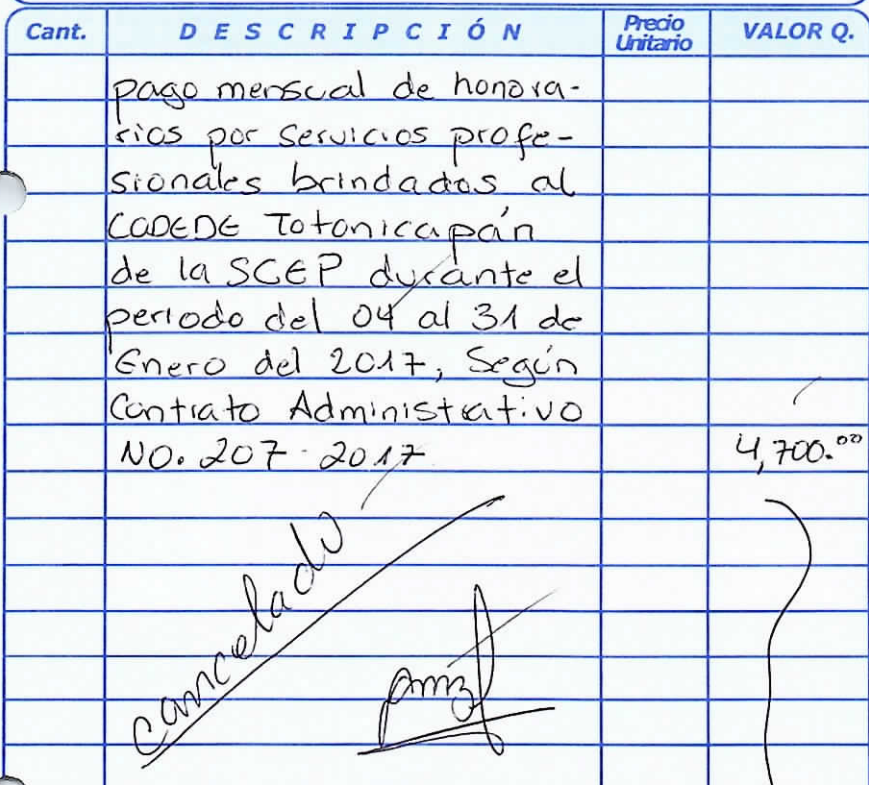 Cant. DESCRIPCIÓN Precio Unitario VALOR Q.
pago mensual de honora-
rios por servicios profe-
sionales brindados al
CODEDE Totonicapán
de la SCEP durante el
periodo del 04 al 31 de
Enero del 2017, Según
Contrato Administrativo
No. 207-2017 4,700.00
cancelado